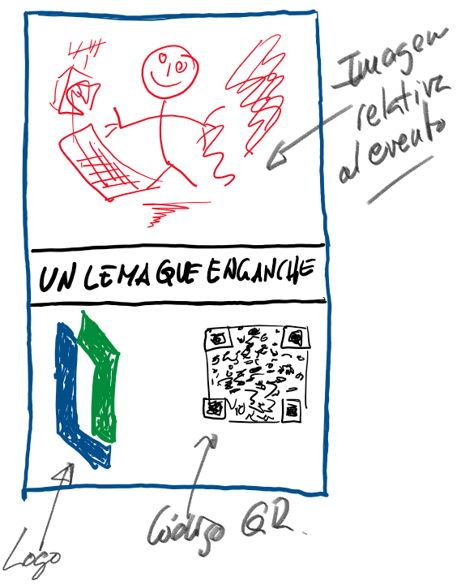 Imagen
relativa
al evento
UN LEMA QUE ENGANCHE
Logo
Código QR.